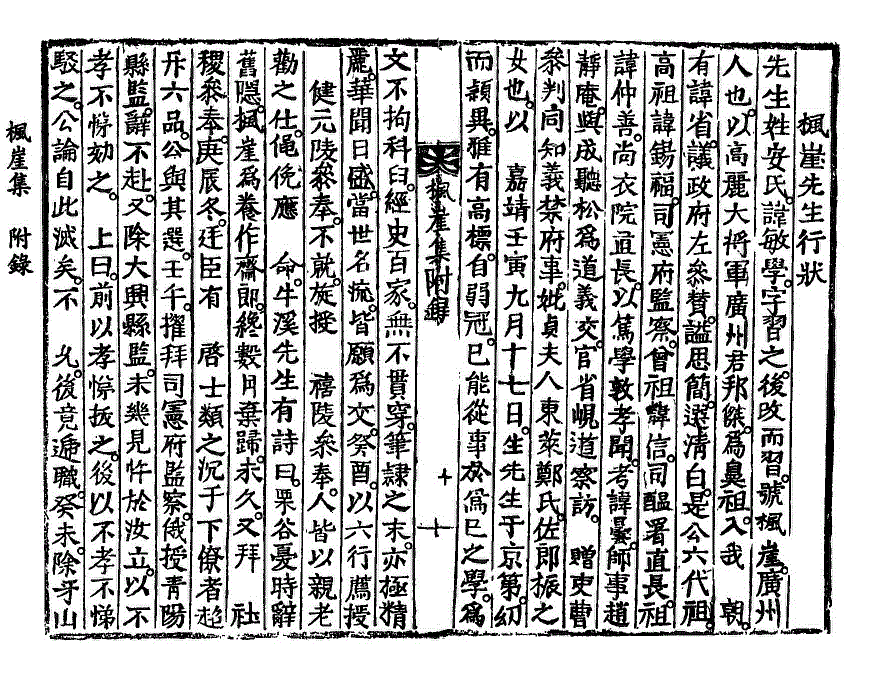 楓崖先生行狀
先生姓安氏諱敏學字習之後改而習號楓崖廣州
人也以高麗大將軍廣州君邦傑爲鼻祖入我 朝
有諱省議政府左參贊謚思簡選淸白是公六代祖
高祖諱錫福司憲府監察曾祖諱信司醞署直長祖
諱仲善尚衣院直長以篤學敦孝聞考諱曇師事趙
靜庵與成聽松爲道義交官省峴道察訪 贈吏曹
參判同知義禁府事妣貞夫人東萊鄭氏佐郎振之
女也以 嘉靖壬寅九月十七日生先生于京第幼
而穎異雅有高標自弱冠已能從事於爲己之學爲
楓崖集附錄 十 十一
文不拘科臼經史百家無不貫穿筆隷之末亦極精
麗華聞日盛當世名流皆願爲文癸酉以六行薦授
健元陵參奉不就旋授 禧陵參奉人皆以親老
勸之仕僶俛應 命牛溪先生有詩曰栗谷憂時辭
舊隱楓崖爲養作齋郎終數月棄歸未久又拜 社
稷參奉庚辰冬廷臣有 啓士類之沉于下僚者超
升六品公與其選壬午擢拜司憲府監察俄授靑陽
縣監辭不赴又除大興縣監未幾見忤於汝立以不
孝不悌劾之 上曰前以孝悌拔之後以不孝不悌
駁之公論自此滅矣不 允後竟遞職癸未除牙山
楓崖集 附錄